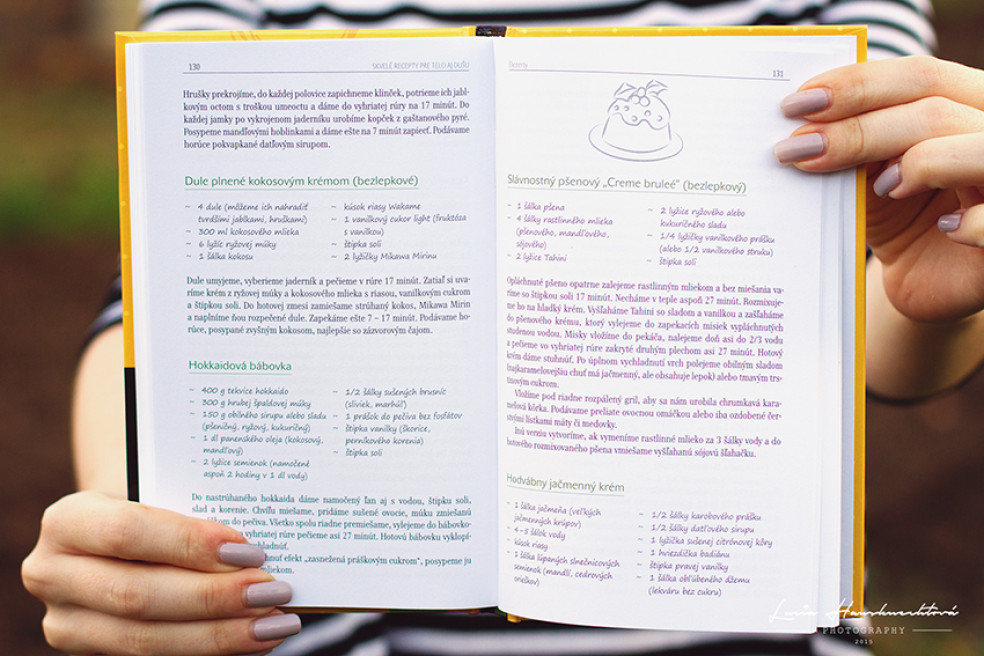 130
SKVELÉ RECEPTY PRE TELO AJ DUŠU
Hrušky prekrojíme, do každej polovice zapichneme klinček, potrieme ich jabl-
kovým octom s troškou umeoctu a dáme do vyhriatej rúry na 17 minút. Do
každej jamky po vykrojenom jaderníku urobíme kopček z gaštanového pyré.
Posypeme mandľovými hoblinkami a dáme ešte na 7 minút zapiecť. Podávame
horúce pokvapkané datľovým sirupom.
Dule plnené kokosovým krémom (bezlepkové)
– 4 dule (môžeme ich nahradiť
tvrdšími jablkami, hruškami)
– 300 ml kokosového mlieka
– 6 lyžíc ryžovej múky
– 1 šálka kokosu
– kúsok riasy Wakame
– 1 vanilkový cukor light (fruktóza
s vanilkou)
– štipka soli
– 2 lyžičky Mikawa Mirinu
Dule umyjeme, vyberieme jaderník a pečieme v rúre 17 minút. Zatiaľ si uva-
ríme krém z ryžovej múky a kokosového mlieka s riasou, vanilkovým cukrom
a štipkou soli. Do hotovej zmesi zamiešame strúhaný kokos, Mikawa Mirin
a naplníme ňou rozpečené dule. Zapekáme ešte 7 – 17 minút. Podávame ho-
rúce, posypané zvyšným kokosom, najlepšie so zázvorovým čajom.
Hokkaidová bábovka
– 400 g tekvice hokkaido
– 300 g hrubej špaldovej múky
– 150 g obilného sirupu alebo sladu
(pšeničný, ryžový, kukuričný)
– 1 dl panenského oleja (kokosový,
mandľový)
– 2 lyžice semienok (namočené
aspoň 2 hodiny v 1 dl vody)
– 1/2 šálky sušených brusníc
(sliviek, marhúľ)
– 1 prášok do pečiva bez fosfátov
– štipka vanilky (škorice,
perníkového korenia)
– štipka soli
Do nastrúhaného hokkaida dáme namočený ľan aj s vodou, štipku soli,
slad a korenie. Chvíľu miešame, pridáme sušené ovocie, múku zmiešanú
kom do pečiva. Všetko spolu riadne premiešame, vylejeme do bábovko-
vyhriatej rúre pečieme asi 27 minút. Hotovú bábovku vyklopí-
hladnúť.
hnuť efekt „zasnežená práškovým cukrom“, posypeme ju
mliekom.
Dezerty
131
Slávnostný pšenový „Creme bruleé“ (bezlepkový)
– 1 šálka pšena
– 4 šálky rastlinného mlieka
(pšenového, mandľového,
sójového)
– 2 lyžice Tahini
– 2 lyžice ryžového alebo
kukuričného sladu
– 1/4 lyžičky vanilkového prášku
(alebo 1/2 vanilkového struku)
– štipka soli
Opláchnuté pšeno opatrne zalejeme rastlinným mliekom a bez miešania va-
ríme so štipkou soli 17 minút. Necháme v teple aspoň 27 minút. Rozmixuje-
me ho na hladký krém. Vyšľaháme Tahini so sladom a vanilkou a zašľaháme
do pšenového krému, ktorý vylejeme do zapekacích misiek vypláchnutých
studenou vodou. Misky vložíme do pekáča, nalejeme doň asi do 2/3 vodu
a pečieme vo vyhriatej rúre zakryté druhým plechom asi 27 minút. Hotový
krém dáme stuhnúť. Po úplnom vychladnutí vrch polejeme obilným sladom
(najkaramelovejšiu chuť má jačmenný, ale obsahuje lepok) alebo tmavým trs-
tinovým cukrom.
Vložíme pod riadne rozpálený gril, aby sa nám urobila chrumkavá kara-
melová kôrka. Podávame preliate ovocnou omáčkou alebo iba ozdobené čer-
stvými lístkami mäty či medovky.
Inú verziu vytvoríme, ak vymeníme rastlinné mlieko za 3 šálky vody a do
hotového rozmixovaného pšena vmiešame vyšľahanú sójovú šľahačku.
Hodvábny jačmenný krém
– 1 šálka jačmeňa (veľkých
jačmenných krúpov)
– 4–5 šálok vody
– kúsok riasy
– 1 šálka lúpaných slnečnicových
semienok (mandlí, cedrových
orieškov)
– 1/2 šálky karobového prášku
– 1/2 šálky datľového sirupu
– 1 lyžička sušenej citrónovej kôry
– 1 hviezdička badiánu
– štipka pravej vanilky
– 1 šálka obľúbeného džemu
(lekváru bez cukru)
PHOTOGRAPHY
2015